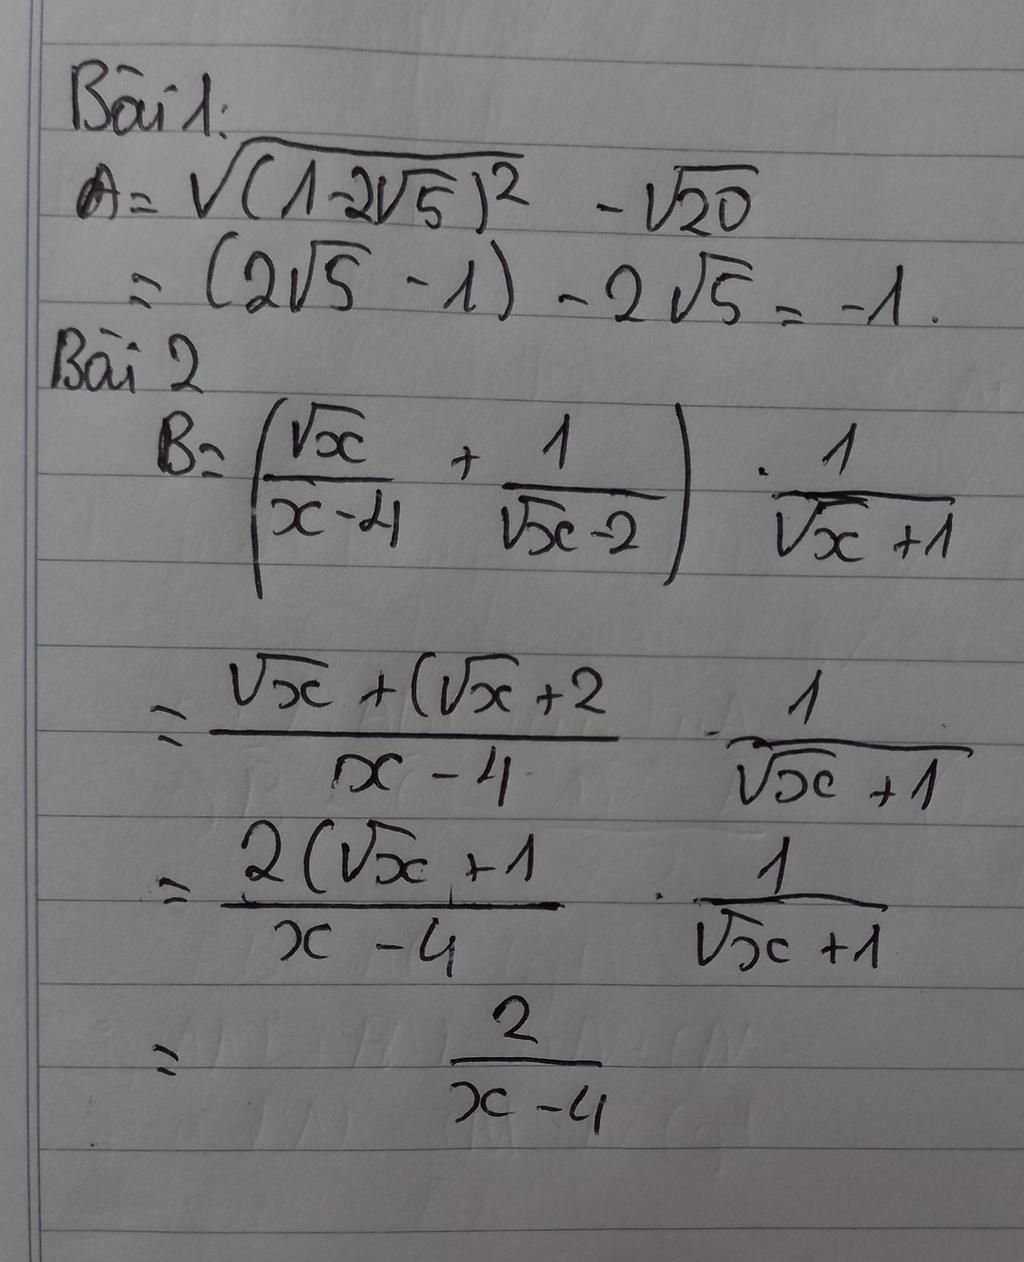 Bài 1:
A = √(1-2√5)² - √20
= (2√5 - 1) - 2√5 = -1.
Bài 2
B = (√x/(x-4) + 1/(√x-2)) . 1/(√x+1)
= (√x + (√x + 2)/(x - 4) . 1/(√x + 1)
= 2(√x + 1/(x - 4) . 1/(√x + 1)
= 2/(x - 4)